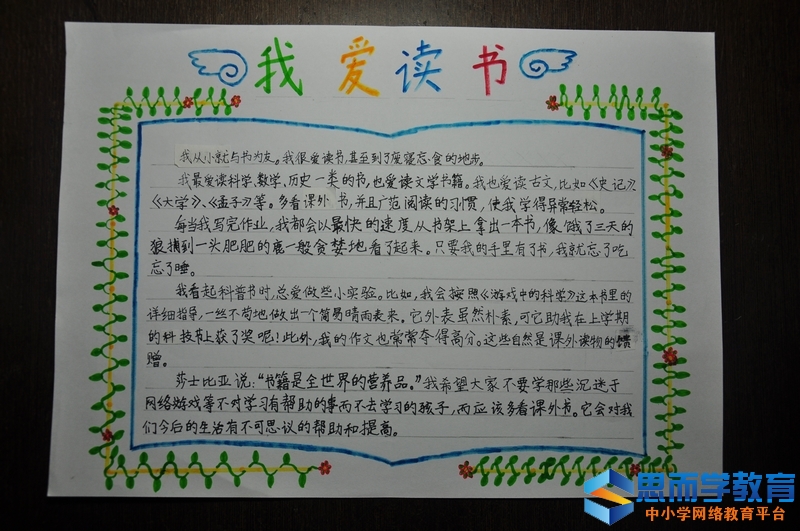 我爱读书
我从小就与书为友。我很爱读书,甚至到了废寝忘食的地步。
我最爱读科学、数学、历史一类的书,也爱读文学书籍。我也爱读古文,比如《史记》、
《大学》、《孟子》等。多看课外书,并且广范阅读的习惯,使我学得异常轻松。
每当我写完作业,我都会以最快的速度,从书架上拿出一本书,像饿了三天的
狼摸到一头肥肥的鹿一般贪婪地看了起来。只要我的手里有了书,我就忘了吃
忘了睡。
我看起科普书时,总爱做些小实验。比如,我会按照《游戏中的科学》这本书里的
详细指导,一丝不苟地做出一个简易晴雨表来。它外表虽然朴素,可它助我在上学期
的科技节上获了奖呢!此外,我的作文也常常夺得高分。这些自然是课外读物的馈
赠。
莎士比亚说:“书籍是全世界的营养品。”我希望大家不要学那些沉迷于
网络游戏等不对学习有帮助的事而不去学习的孩子,而应该多看课外书。它会对我
们今后的生活有不可思议的帮助和提高。
思而学教育
中小学网络教育平台